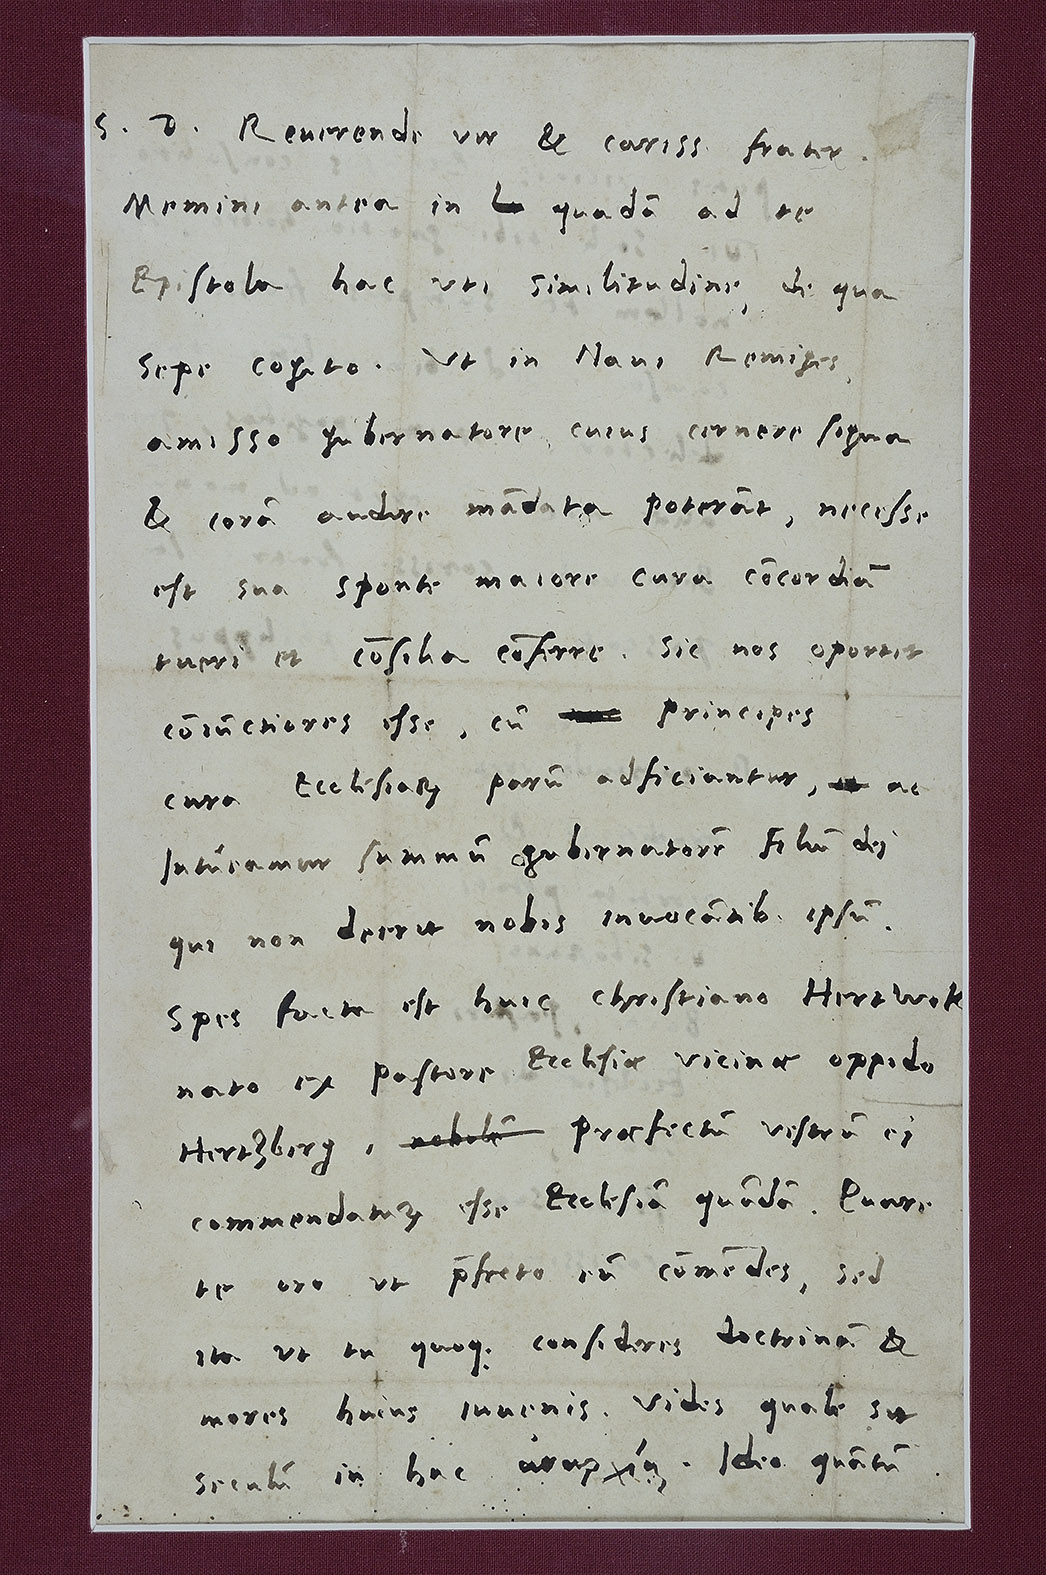 S. D. Reuerende vir & cariss. frater.
Memini antea in quadā ad te
Epistola hac vti similitudine, de qua
sepe cogito. Vt in Naui Remiges,
amisso gubernatore, cuius cernere signa
& corā audire mādata poterāt, necesse
est sua sponte maiore cura cōcordiā
tueri et cōsilia cōferre. Sic nos oportet
cōiūctiores esse, cū principes
cura Ecclesiaꝝ parū adficiantur, ac
Intueamur summū gubernatorē filiū dei
qui non deerit nobis inuocātib. ipsū.
Spes facta est huic Christiano Hertwok
nato ex pastore Ecclesiæ vicinæ oppido
Hertzberg, præfectū vestrū ei
commendatuꝝ esse Ecclesiā quādā. Quare
te oro vt p̄fecto eū cōmēdes, sed
ita vt tu quoq; consideres doctrinā &
mores huius iuuenis. Vides quale sit
seculū in hac ἀναρχίᾳ. Ideo quātū